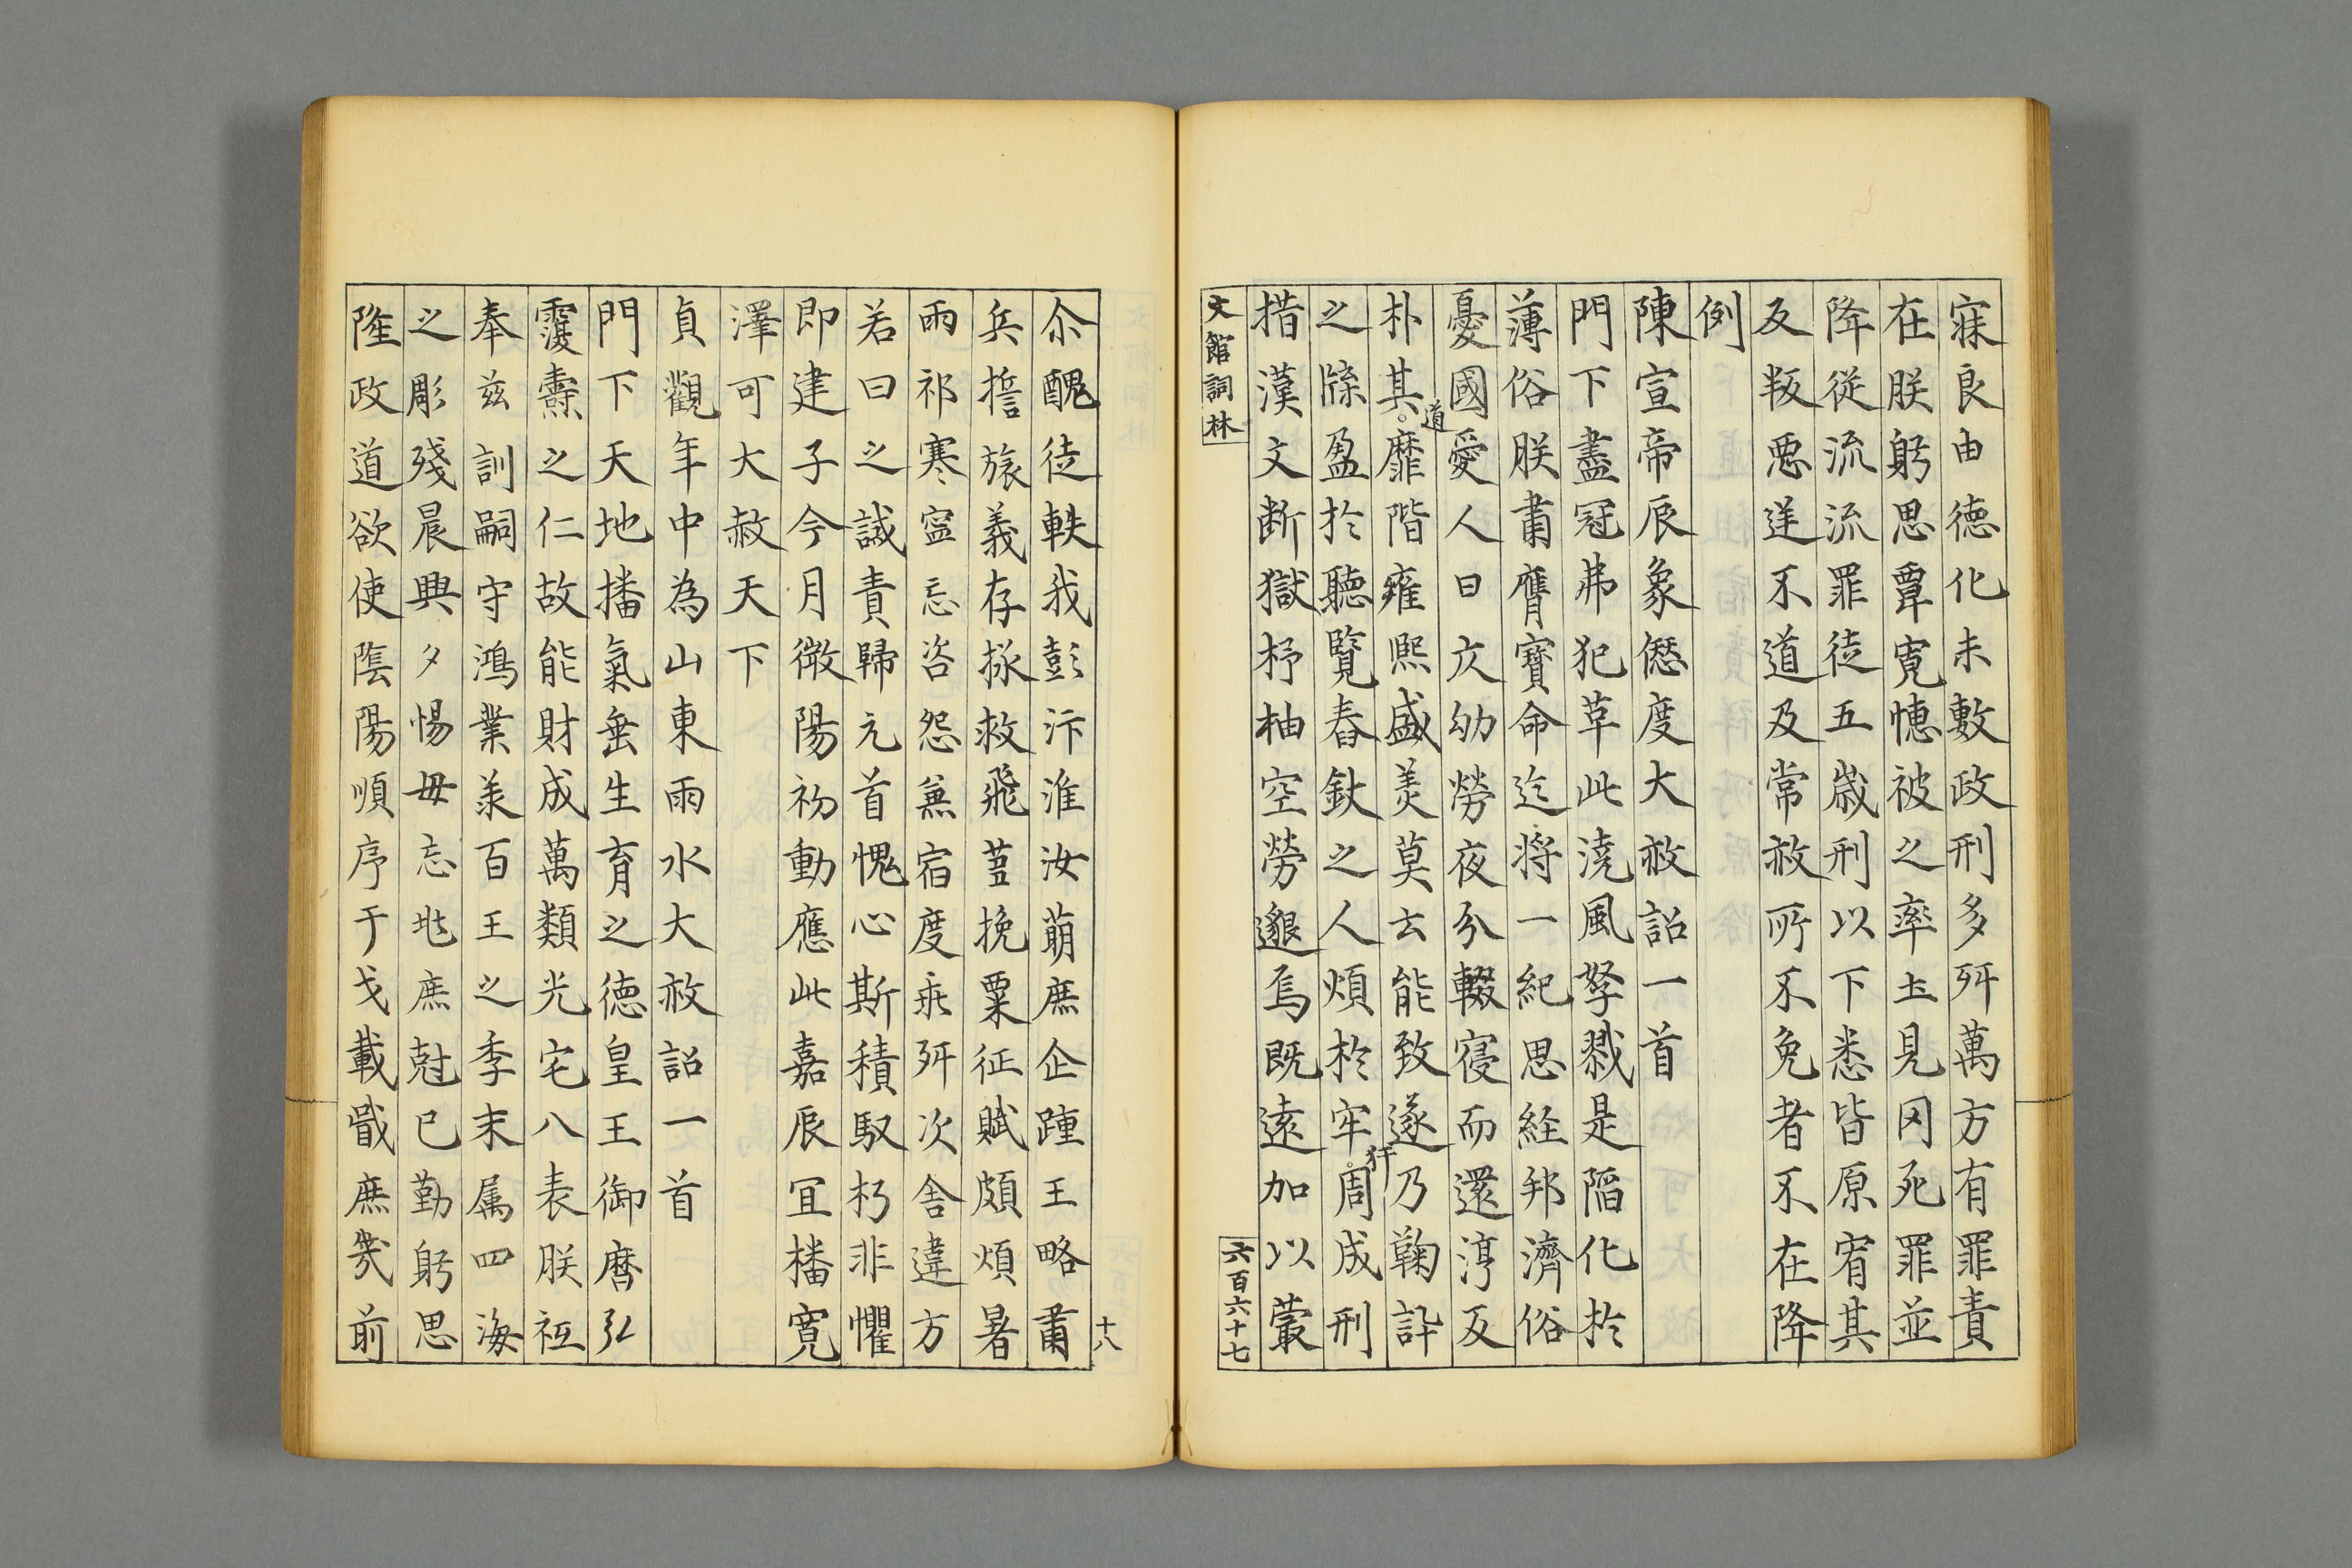 寐良由德化未敷政刑多舛萬方有罪責
在朕躬思覃寬憓被之率土見囚死罪並
降從流流罪徒五歳刑以下悉皆原宥其
反叛惡逆不道及常赦所不免者不在降
例
陳宣帝辰象愆度大赦詔一首
門下盡冠弗犯草此澆風孥戮是陷化於
薄俗朕肅膺寶命迄將一紀思経邦濟俗
憂國愛人日庂幼勞夜分輟寑而還淳反
朴其道靡階雍熙盛美莫去能致遂乃鞠訐
之牒盈於聽覽舂釱之人煩於牢犴周成刑
措漢文断獄杼柚空勞邈焉既遠加以蕞
文館詞林
六百六十七
尒醜徒軼我彭汴淮汝萠庶企踵王略肅
兵擔旅義存拯救飛蒭挽粟征賦頗煩暑
雨祁寒寍忘咨怨兼宿度乖舛次舍違方
若曰之誠責歸元首愧心斯積馭朽非懼
即建子今月微陽初動應此嘉辰冝橎寬
澤可大赦天下
貞觀年中為山東雨水大赦詔一首
門下天地播氣垂生育之德皇王御曆弘
覆燾之仁故能財成萬類光宅八表朕祗
奉兹訓嗣守鴻業羕百王之季末属四海
之彫殘晨興夕惕毋忘兆庶尅已勤躬思
隆政道欲使陰陽順序干戈載戢庶㡬前
十八